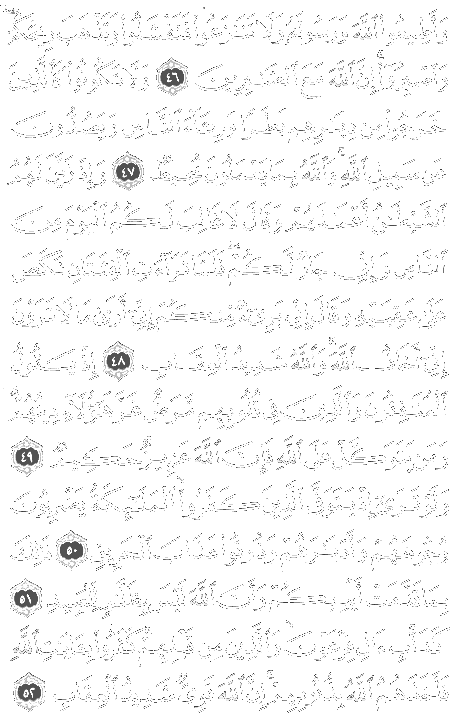 وَأَطِيعُوا۟ ٱللَّهَ وَرَسُولَهُۥ وَلَا تَنَـٰزَعُوا۟ فَتَفْشَلُوا۟ وَتَذْهَبَ رِيحُكُمْ
وَٱصْبِرُوٓا۟ ۚ إِنَّ ٱللَّهَ مَعَ ٱلصَّـٰبِرِينَ ٤٦ وَلَا تَكُونُوا۟ كَٱلَّذِينَ
خَرَجُوا۟ مِن دِيَـٰرِهِم بَطَرًا وَرِئَآءَ ٱلنَّاسِ وَيَصُدُّونَ
عَن سَبِيلِ ٱللَّهِ ۚ وَٱللَّهُ بِمَا يَعْمَلُونَ مُحِيطٌ ٤٧ وَإِذْ زَيَّنَ لَهُمُ
ٱلشَّيْطَـٰنُ أَعْمَـٰلَهُمْ وَقَالَ لَا غَالِبَ لَكُمُ ٱلْيَوْمَ مِنَ
ٱلنَّاسِ وَإِنِّى جَارٌ لَّكُمْ ۖ فَلَمَّا تَرَآءَتِ ٱلْفِئَتَانِ نَكَصَ
عَلَىٰ عَقِبَيْهِ وَقَالَ إِنِّى بَرِىٓءٌ مِّنكُمْ إِنِّىٓ أَرَىٰ مَا لَا تَرَوْنَ
إِنِّىٓ أَخَافُ ٱللَّهَ ۚ وَٱللَّهُ شَدِيدُ ٱلْعِقَابِ ٤٨ إِذْ يَقُولُ
ٱلْمُنَـٰفِقُونَ وَٱلَّذِينَ فِى قُلُوبِهِم مَّرَضٌ غَرَّ هَـٰٓؤُلَآءِ دِينُهُمْ ۗ
وَمَن يَتَوَكَّلْ عَلَى ٱللَّهِ فَإِنَّ ٱللَّهَ عَزِيزٌ حَكِيمٌ ٤٩
وَلَوْ تَرَىٰٓ إِذْ يَتَوَفَّى ٱلَّذِينَ كَفَرُوا۟ ۙ ٱلْمَلَـٰٓئِكَةُ يَضْرِبُونَ
وُجُوهَهُمْ وَأَدْبَـٰرَهُمْ وَذُوقُوا۟ عَذَابَ ٱلْحَرِيقِ ٥٠ ذَٰلِكَ
بِمَا قَدَّمَتْ أَيْدِيكُمْ وَأَنَّ ٱللَّهَ لَيْسَ بِظَلَّـٰمٍ لِّلْعَبِيدِ ٥١
كَدَأْبِ ءَالِ فِرْعَوْنَ ۙ وَٱلَّذِينَ مِن قَبْلِهِمْ ۚ كَفَرُوا۟ بِـَٔايَـٰتِ ٱللَّهِ
فَأَخَذَهُمُ ٱللَّهُ بِذُنُوبِهِمْ ۗ إِنَّ ٱللَّهَ قَوِىٌّ شَدِيدُ ٱلْعِقَابِ ٥٢